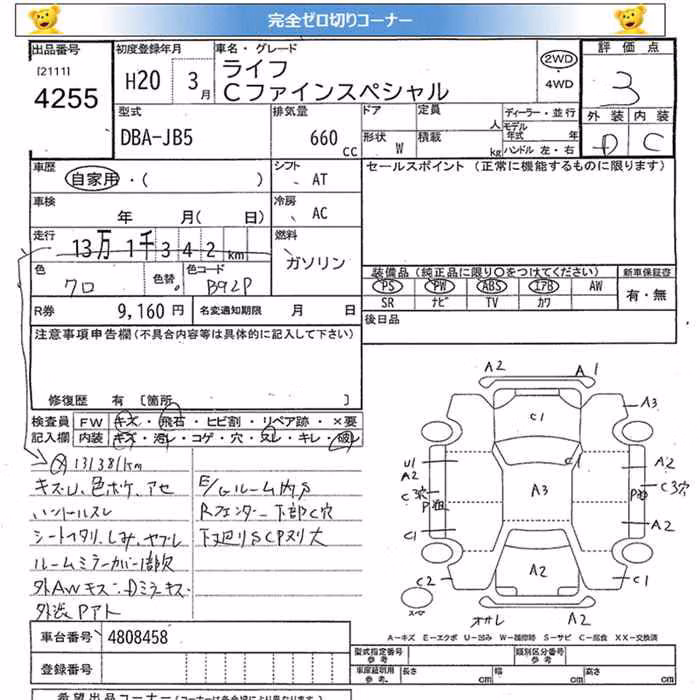 完全ゼロ切りコーナー
出品番号
[2111]
4255
初度登録年月
H20 3月
車名・グレード
ライフ
Cファインスペシャル
2WD
・
4WD
評価点
3
外装 内装
D C
型式
DBA-JB5
排気量
660 cc
ドア
形状 W
定員 人
積載 kg
ディーラー・並行
モデル年式 年
ハンドル 左・右
車歴
自家用・( )
シフト
AT
セールスポイント (正常に機能するものに限ります)
車検
年 月( 日)
冷房
AC
走行
13万 1千 3 4 2 km
燃料
ガソリン
色
クロ
色替
色コード
B92P
装備品(純正品に限り○をつけてください)
新車保証書
PS PW ABS エアB AW
SR ナビ TV カワ
有・無
R券
9,160 円
名変通知期限 月 日
後日品
注意事項申告欄(不具合内容等は具体的に記入して下さい)
修復歴 有 [箇所 ]
検査員
記入欄
FW キズ・飛石・ヒビ割・リペア跡・×要
内装 キズ・汚レ・コゲ・穴・スレ・キレ・破レ
131381km
キズU、色ボケ、アセ
ハンドルスレ
シートヘタリ、しみ、ヤブレ
ルームミラーカバー1部欠
外AWキズ
外装Pアト
E/Gルーム内S
Rフェンダー下部C穴
下廻りSCPヌリ大
A2 A1
C1
A3
C1
U1
A2
A2
C3穴
A3
C3穴
A2
C1
A2
C2
C1
A2
スペアー
A−キズ E−エクボ U−凹み W−補修跡 S−サビ C−腐食 XX−交換済
車台番号
4808458
登録番号
型式指定番号
参考
類別区分番号
参考
車庫証明用
参考
長さ cm
幅 cm
高さ cm
希望出品コーナー